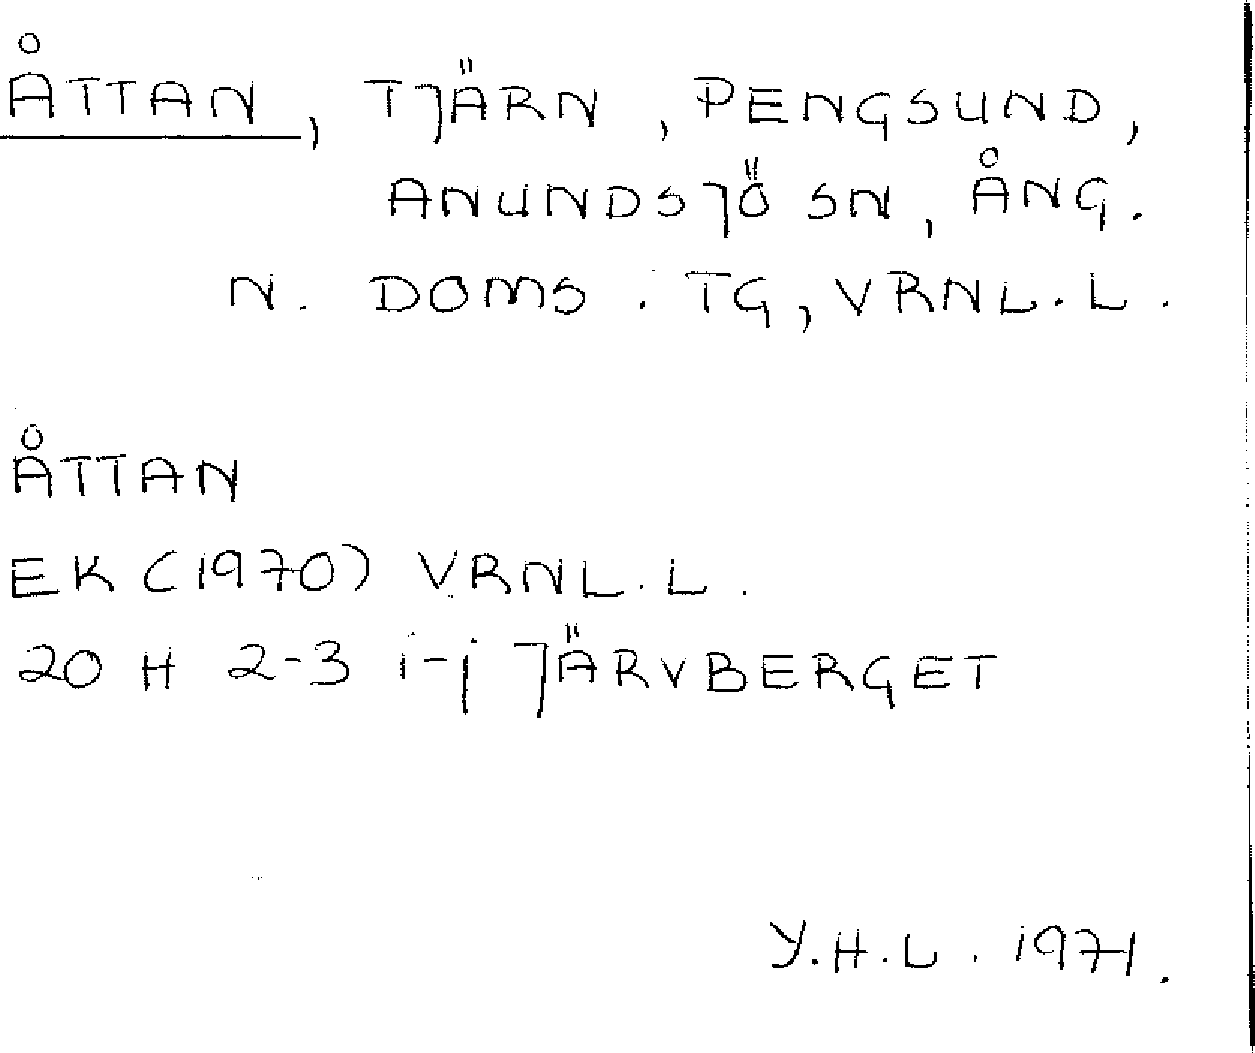 ÅTTAN, TJÄRN, PENGSUND,
ANUNDSJÖ SN, ÅNG.
N. DOMS. TG, VRNL.L.
ÅTTAN
EK (1970) VRNL.L.
20 H 2-3 i-j JÄRVBERGET
Y.H.L. 1971.